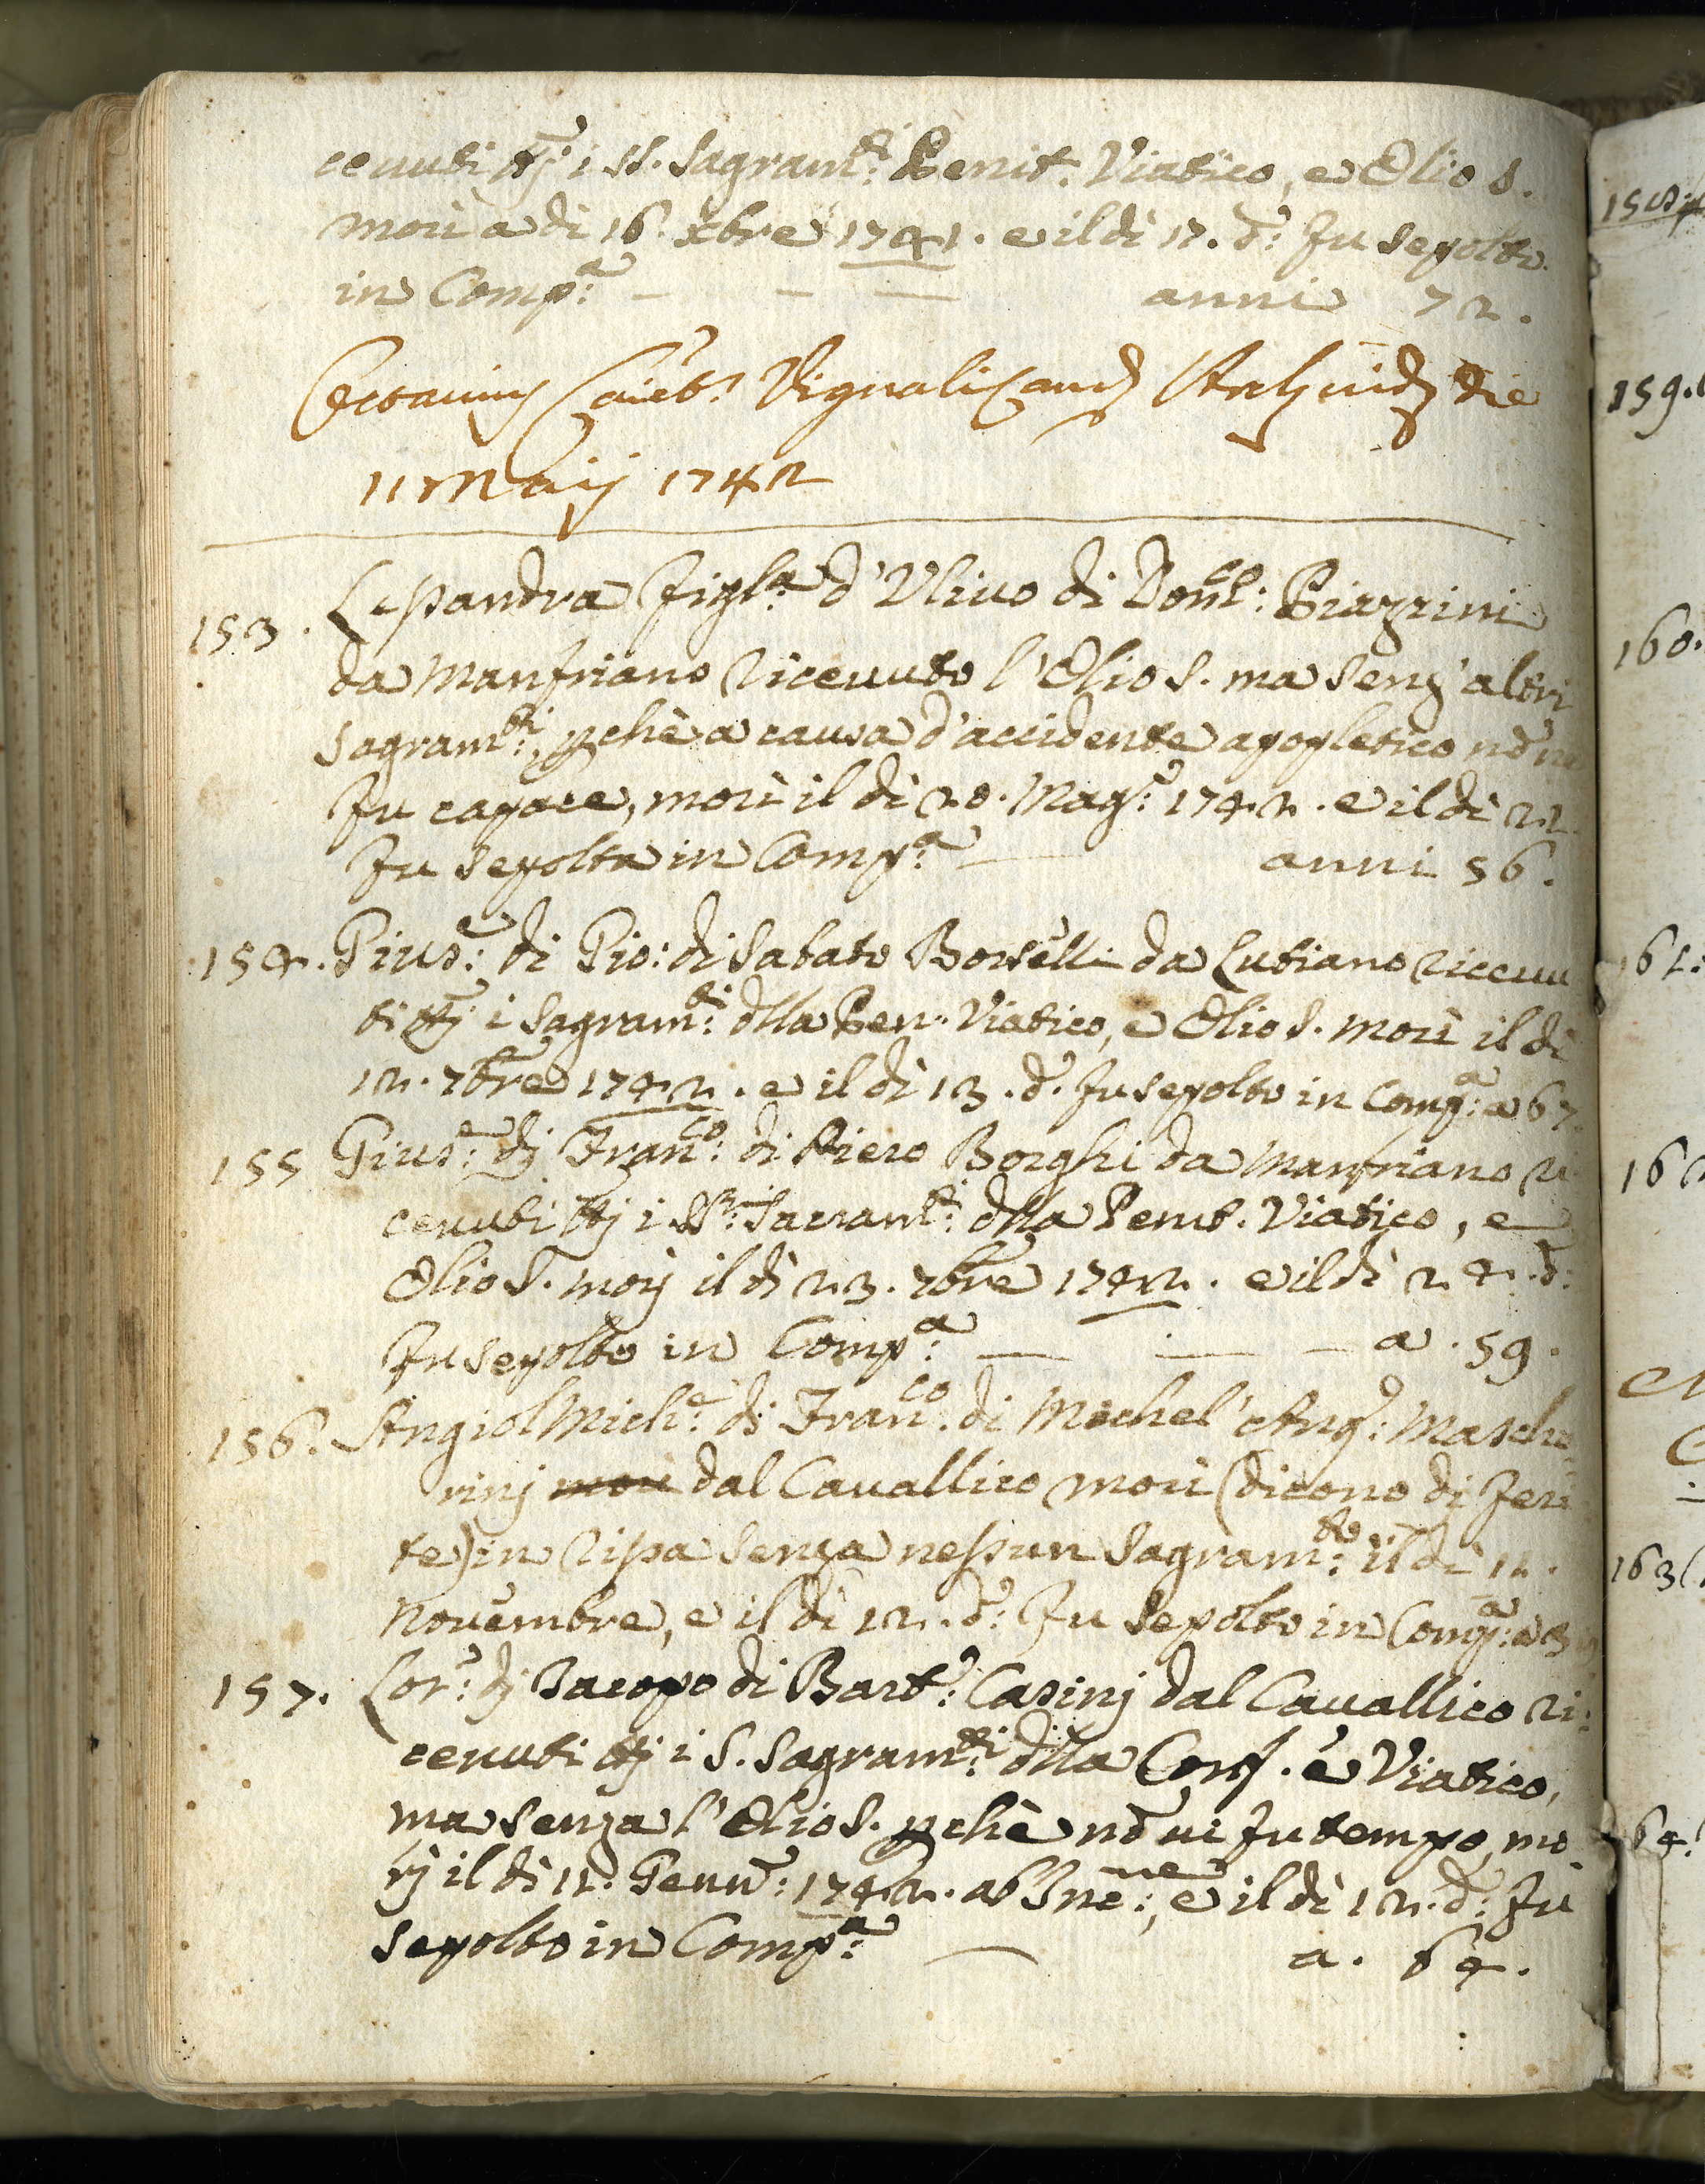 ceuuti ttj i SS. Sagram:ti Penit. Viatico, e Olio S.
morì a di 16. Xbre 1741. e il dì 17. d:o fu sepolto
in Comp:a — — — anni 72.
Vignali die
11 Maij 1742
153. Lessandra figl:a d'Uliuo di Dom:co Piazzini
da Manfriano riceuuto l'Olio S. ma senz'altri
Sagram:ti, pchè a causa d'accidente apopletico nõ ne
fu capace, morì il dì 20. Mag:o 1742. e il dì 22
fu sepolta in Comp:a — anni 56.
154. Gius:e di Gio: di Sabato Borselli da Lutiano riceuu
ti ttj i Sagram:ti dlla Pen. Viatico, e Olio S. morì il di
12. 7bre 1742. e il dì 13. d:o fu sepolto in Comp:a a 67.
155 Gius:e dj Fran:co di Piero Borghi da Manfriano ri
ceuuti ttj i SS:mi Sacram:ti dlla Penit. Viatico, e
Olio S. morj il dì 23. 7bre 1742. e il dì 24. d:o
fu sepolto in Comp:a — — — a. 59.
156. Angiol Mich:e di Fran:co di Michel'Ang:o Masche
rinj morì dal Cauallico morì (dicono dj feri
te) in ripa senza nessun Sagram:to il dì 11.
Nouembre, e il dì 12. d:o fu sepolto in Comp:a a 3
157. Lor:o dj Jacopo di Bart:o Casinj dal Cauallico ri:
ceuuti ttj i S. Sagram:ti dlla Conf. e Viatico,
ma senza l'Olio S. pchè nõ ui fu tempo, mo
rj il dì 11. Genn:o 1742. ab Inc:ne, e il dì 12. d:o fu
sepolto in Comp:a — a. 64.
159.
160.
163